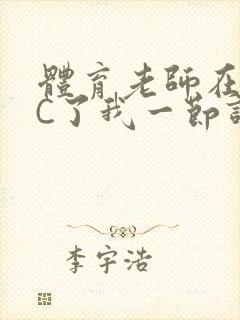 體育老師在
C了我一節
李宇浩